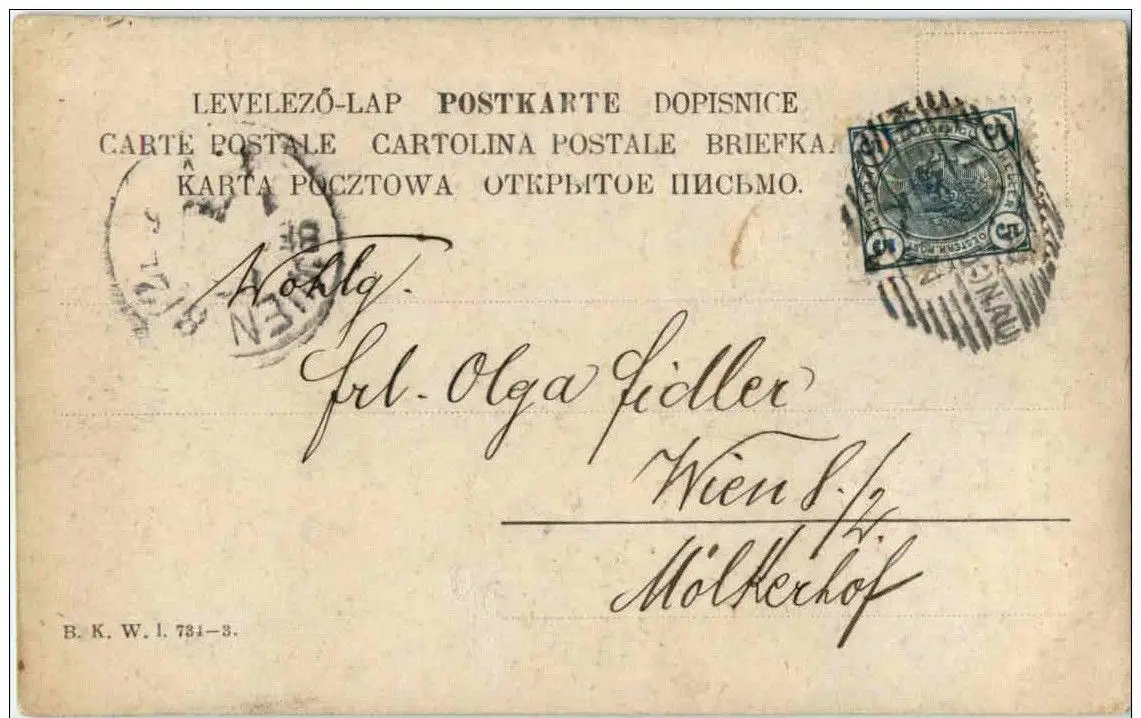 LEVELEZŐ-LAP POSTKARTE DOPISNICE
CARTE POSTALE CARTOLINA POSTALE BRIEFKA
KARTA POCZTOWA ОТКРЫТОЕ ПИСЬМО.
WIEN
5
5
5
5
Wohlg.
Frl. Olga Fidler
Wien 8./2.
Mölkerhof
B. K. W. I. 731-3.